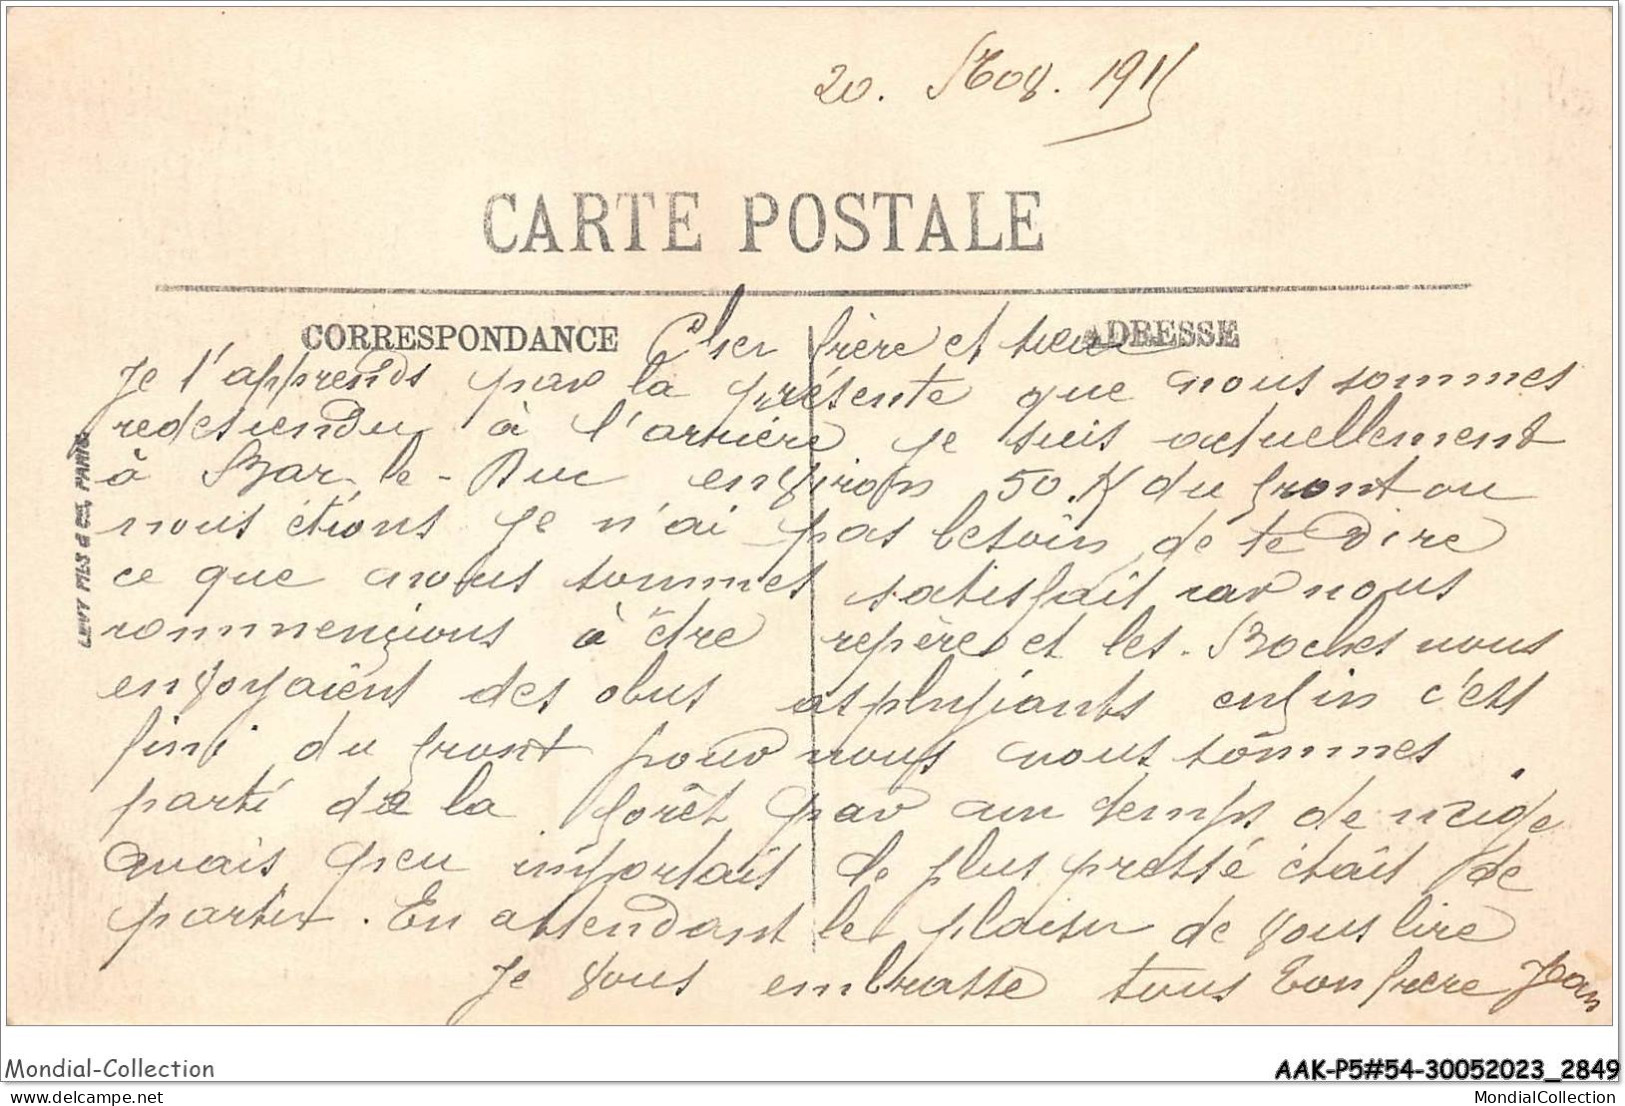 20. Nov. 1915
CARTE POSTALE
CORRESPONDANCE
ADRESSE
Cher frère et sœur
Je t'apprends par la présente que nous sommes
redesendu à l'arrière je suis actuellement
à Bar-le-Duc environ 50 K du front ou
nous étions je n'ai pas besoin de te dire
ce que nous sommes satisfait car nous
commençions à être repère et les Boches nous
envoyaient des obus asphyxiants enfin c'est
fini du front pour nous nous sommes
parti de la forêt par un temps de neige
mais peu importait le plus pressé était de
partir. En attendant le plaisir de vous lire
Je vous embrasse tous ton frère Jean
LEVY FILS & Cie, PARIS
Mondial-Collection
AAK-P5#54-30052023_2849
MondialCollection
delcampe.net
MondialCollection